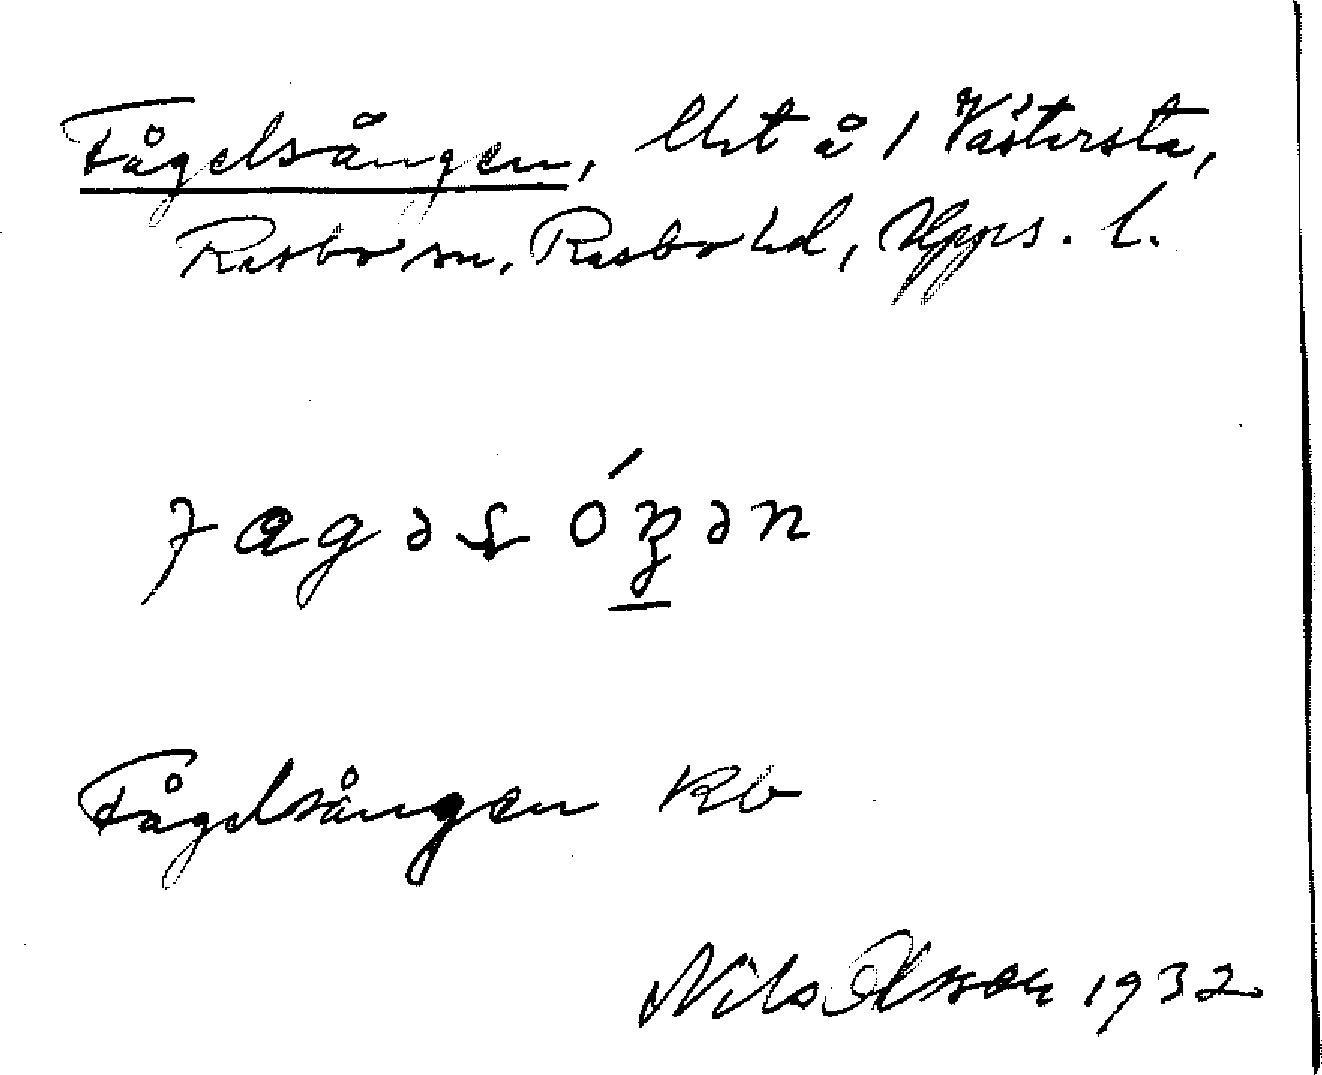 Fågelsången, lht å 1 Västersta,
Rasbo sn, Rasbo hd, Upps. l.
fagəsóŋən
Fågelsången Kb
Nils Olsson 1932